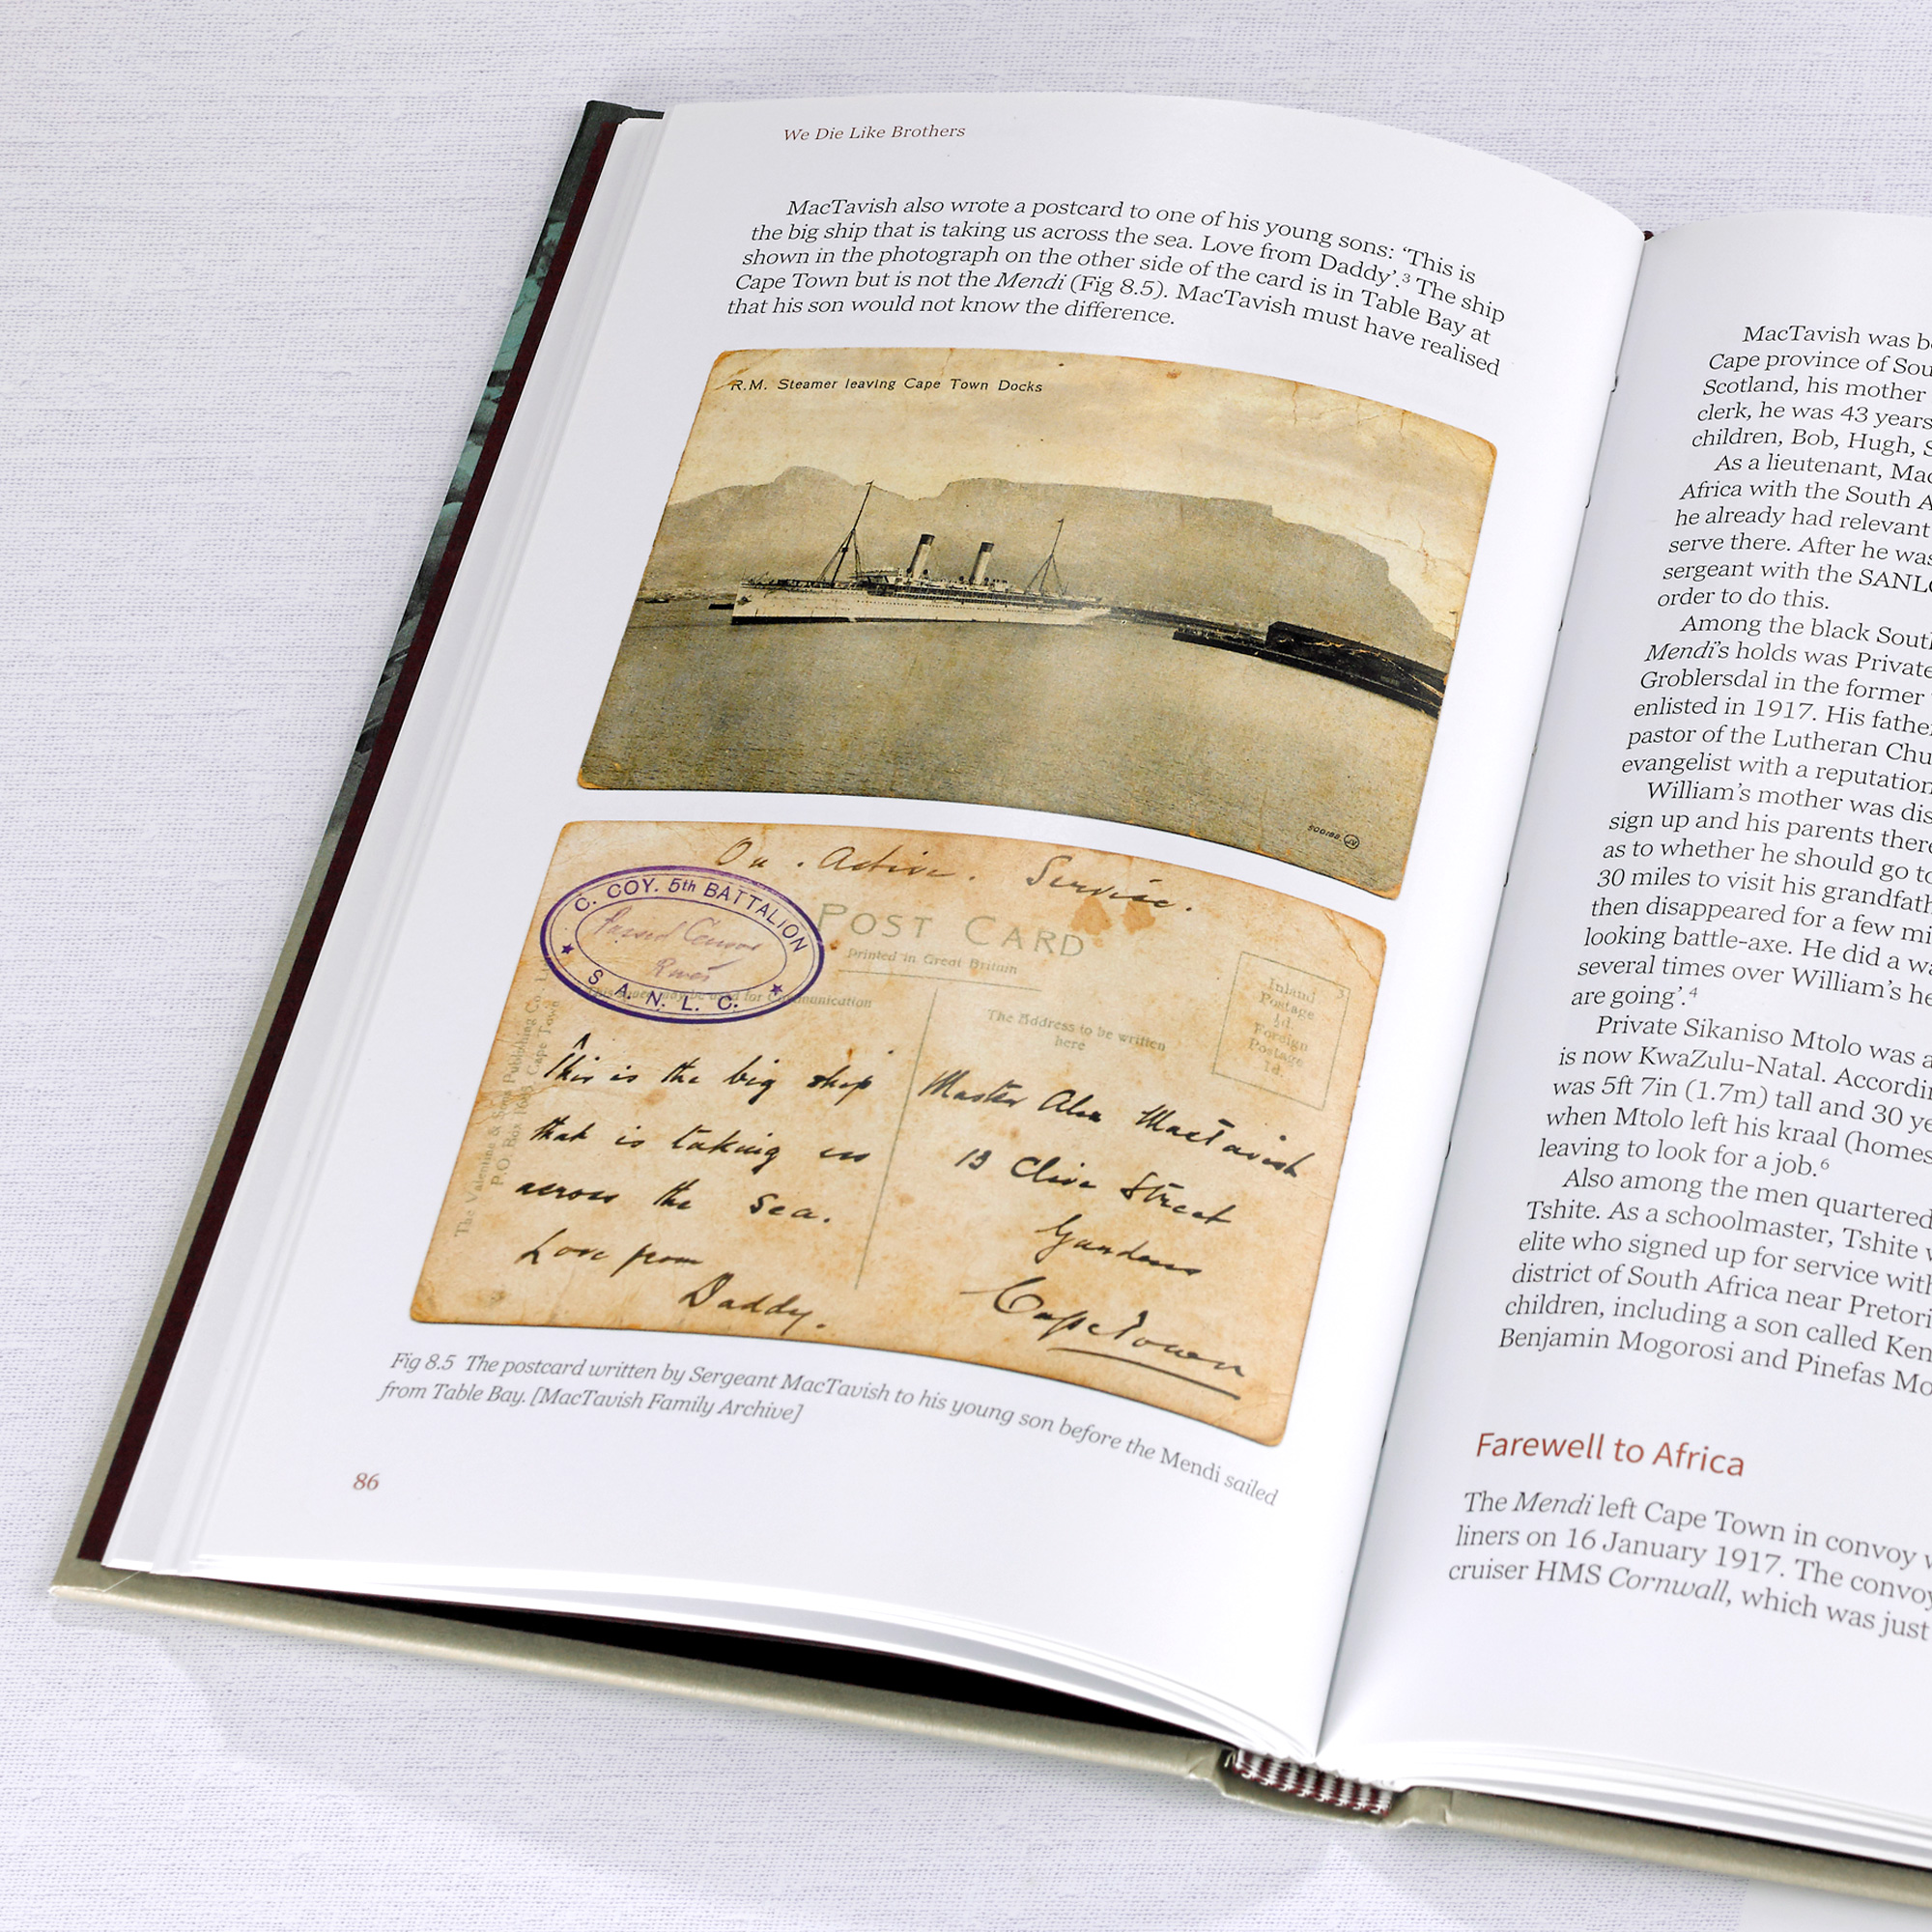 We Die Like Brothers
MacTavish also wrote a postcard to one of his young sons: ‘This is
the big ship that is taking us across the sea. Love from Daddy’.³ The ship
shown in the photograph on the other side of the card is in Table Bay at
Cape Town but is not the Mendi (Fig 8.5). MacTavish must have realised
that his son would not know the difference.
R.M. Steamer leaving Cape Town Docks
JV
On . Active . Service .
C. COY. 5th BATTALION
Passed Censor
S. A. N. L. C.
POST CARD
Printed in Great Britain
This space may be used for Communication
The Address to be written
here
Inland
Postage
½d.
Foreign
Postage
1d.
The Valentine & Sons Publishing Co. Ltd.
P.O. Box 1685 Cape Town
This is the big ship
that is taking us
across the sea.
Love from
Daddy.
Master Alan MacTavish
13 Clive Street
Gardens
Cape Town
Fig 8.5 The postcard written by Sergeant MacTavish to his young son before the Mendi sailed
from Table Bay. [MacTavish Family Archive]
86
MacTavish was
Cape province of
Scotland, his mother
clerk, he was 43 years
children, Bob, Hugh,
As a lieutenant,
Africa with the South
he already had relevant
serve there. After he was
sergeant with the
order to do this.
Among the black
Mendi’s holds was Private
Groblersdal in the former
enlisted in 1917. His
pastor of the Lutheran
evangelist with a reputation
William’s mother was
sign up and his parents
as to whether he should go to
30 miles to visit his
then disappeared for a few
looking battle-axe. He did a
several times over William’s
are going’.⁴
Private Sikaniso Mtolo was
is now KwaZulu-Natal.
was 5ft 7in (1.7m) tall and 30
when Mtolo left his kraal
leaving to look for a job.⁶
Also among the men quartered
Tshite. As a schoolmaster, Tshite
elite who signed up for service
district of South Africa near
children, including a son called
Benjamin Mogorosi and Pinefas
Farewell to Africa
The Mendi left Cape Town in convoy
liners on 16 January 1917. The convoy
cruiser HMS Cornwall, which was just